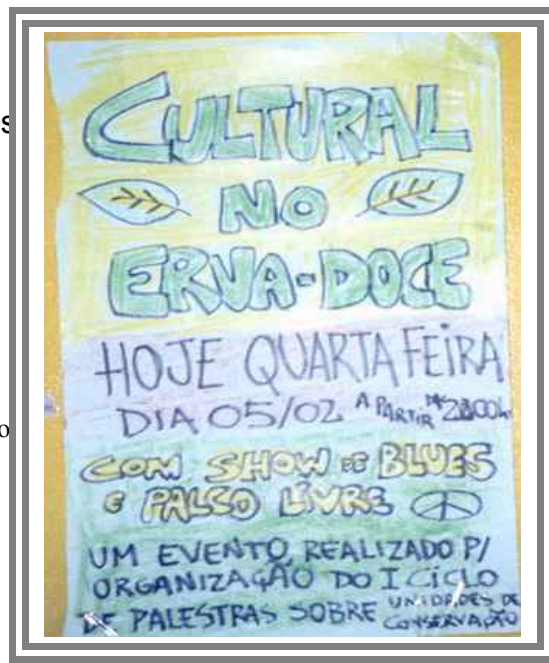 s
CULTURAL
NO
ERVA-DOCE
HOJE QUARTA FEIRA
DIA 05/02 A PARTIR DAS
COM SHOW DE BLUES
E PALCO LIVRE
UM EVENTO REALIZADO P/
ORGANIZAÇÃO DO I CICLO
DE PALESTRAS SOBRE UNIDADES DE
CONSERVAÇÃO